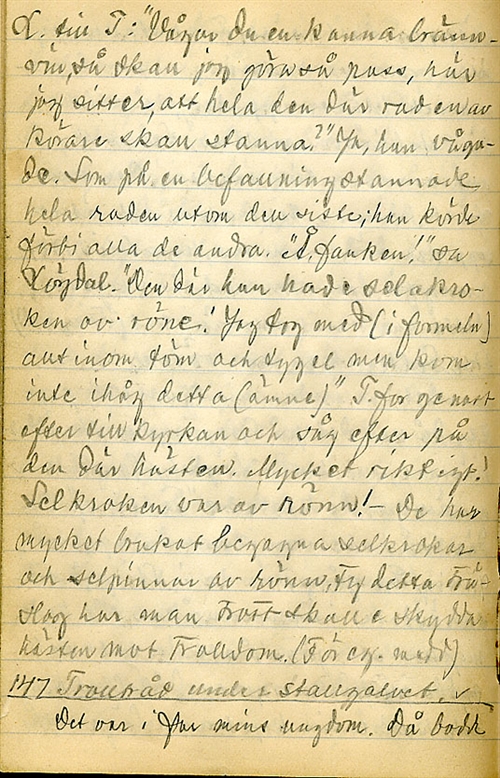 L. till T: "Vågar du en kanna bränn-
vin, så skall jag göra så pass, här
jag sitter, att hela den där raden av
körare skall stanna?" Ja, han våga-
de. Som på en befallning stannade
hela raden utom den siste; han körde
förbi alla de andra. "Å, fanken!" sa
"Den där han hade selakro-
ken av röne! Jag tog med (i formeln)
allt inom töm och tygel men kom
inte ihåg detta (ämne)" T. for genast
efter till kyrkan och såg efter på
den där hästen. Mycket riktigt!
Selkroken var av rönn! - De har
mycket brukat begagna selkrokar
och selpinnar av rönn, ty detta trä-
slag har man trott skulle skydda
hästen mot trolldom. (För eg. medd)
147 Trollråd under stallgolvet. ✓
Det var i far mins ungdom. Då bodde